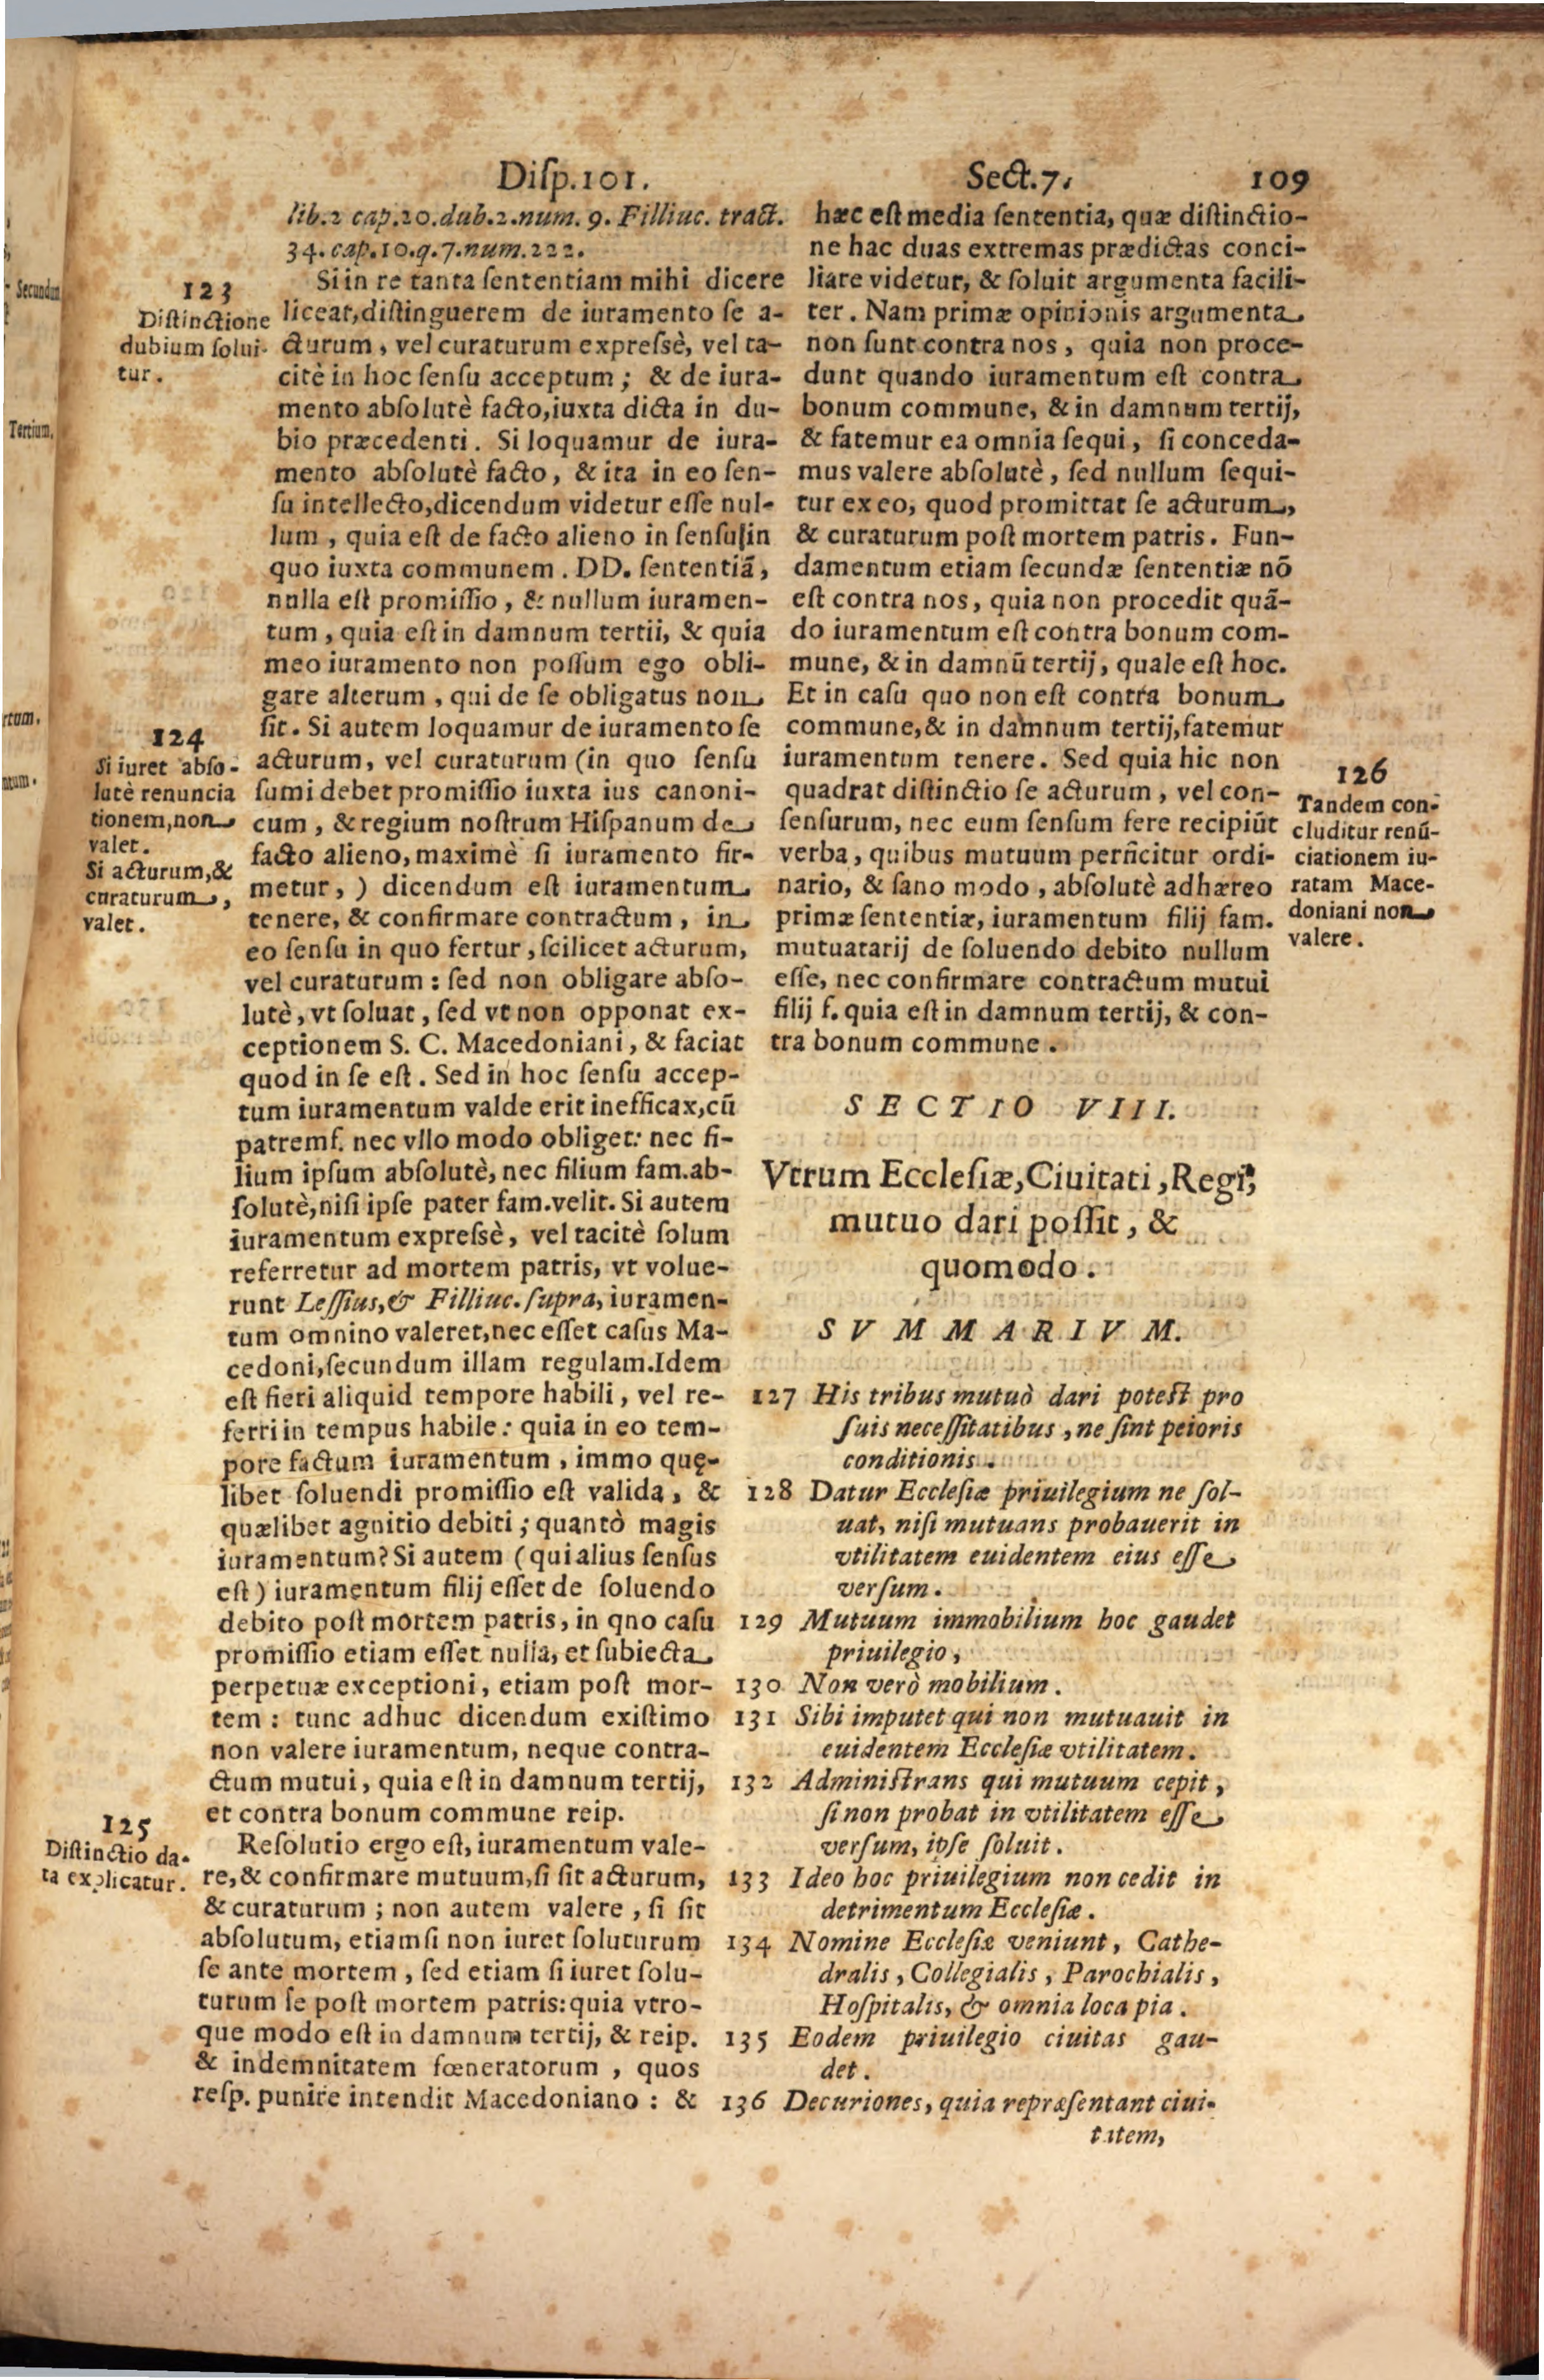 Diſp.101.
Sect.7.
109
lib.2 cap.20.dub.2.num.9. Filliuc. tract.
34.cap.10.q.7.num.222.
123
Diſtinctione
dubium ſolui-
tur.
Si in re tanta ſententiam mihi dicere
liceat,diſtinguerem de iuramento ſe a-
cturum, vel curaturum expreſsè, vel ta-
citè in hoc ſenſu acceptum; & de iura-
mento abſolutè facto,iuxta dicta in du-
bio præcedenti. Si loquamur de iura-
mento abſolutè facto, & ita in eo ſen-
ſu intellecto,dicendum videtur eſſe nul-
lum, quia eſt de facto alieno in ſenſu in
quo iuxta communem. DD. ſententiã,
nulla eſt promiſſio, & nullum iuramen-
tum, quia eſt in damnum tertii, & quia
meo iuramento non poſſum ego obli-
gare alterum, qui de ſe obligatus non
ſit. Si autem loquamur de iuramento ſe
124
Si iuret abſo-
lutè renuncia
tionem,non
valet.
Si acturum,&
curaturum,
valet.
acturum, vel curaturum (in quo ſenſu
ſumi debet promiſſio iuxta ius canoni-
cum, & regium noſtrum Hiſpanum de
facto alieno, maximè ſi iuramento fir-
metur, ) dicendum eſt iuramentum
tenere, & confirmare contractum, in
eo ſenſu in quo fertur, ſcilicet acturum,
vel curaturum: ſed non obligare abſo-
lutè, vt ſoluat, ſed vt non opponat ex-
ceptionem S. C. Macedoniani, & faciat
quod in ſe eſt. Sed in hoc ſenſu accep-
tum iuramentum valde erit inefficax,cũ
patremf. nec vllo modo obliget: nec fi-
lium ipſum abſolutè, nec filium fam.ab-
ſolutè,niſi ipſe pater fam.velit. Si autem
iuramentum expreſsè, vel tacitè ſolum
referretur ad mortem patris, vt volue-
runt Leſſius,& Filliuc. ſupra, iuramen-
tum omnino valeret,nec eſſet caſus Ma-
cedoni,ſecundum illam regulam.Idem
eſt fieri aliquid tempore habili, vel re-
ferri in tempus habile: quia in eo tem-
pore factum iuramentum, immo quę-
libet ſoluendi promiſſio eſt valida, &
quælibet agnitio debiti; quantò magis
iuramentum? Si autem (qui alius ſenſus
eſt) iuramentum filij eſſet de ſoluendo
debito poſt mortem patris, in qno caſu
promiſſio etiam eſſet nulla, et ſubiecta
perpetuæ exceptioni, etiam poſt mor-
tem: tunc adhuc dicendum exiſtimo
non valere iuramentum, neque contra-
ctum mutui, quia eſt in damnum tertij,
et contra bonum commune reip.
125
Diſtinctio da-
ta explicatur.
Reſolutio ergo eſt, iuramentum vale-
re,& confirmare mutuum,ſi ſit acturum,
& curaturum; non autem valere, ſi ſit
abſolutum, etiamſi non iuret ſoluturum
ſe ante mortem, ſed etiam ſi iuret ſolu-
turum ſe poſt mortem patris: quia vtro-
que modo eſt in damnum tertij, & reip.
& indemnitatem fœneratorum, quos
reſp. punire intendit Macedoniano: &
hæc eſt media ſententia, quæ diſtinctio-
ne hac duas extremas prædictas conci-
liare videtur, & ſoluit argumenta facili-
ter. Nam primæ opinionis argumenta
non ſunt contra nos, quia non proce-
dunt quando iuramentum eſt contra
bonum commune, & in damnum tertij,
& fatemur ea omnia ſequi, ſi conceda-
mus valere abſolutè, ſed nullum ſequi-
tur ex eo, quod promittat ſe acturum,
& curaturum poſt mortem patris. Fun-
damentum etiam ſecundæ ſententiæ nõ
eſt contra nos, quia non procedit quã-
do iuramentum eſt contra bonum com-
mune, & in damnũ tertij, quale eſt hoc.
Et in caſu quo non eſt contra bonum
commune,& in damnum tertij,fatemur
iuramentum tenere. Sed quia hic non
quadrat diſtinctio ſe acturum, vel con-
ſenſurum, nec eum ſenſum fere recipiũt
verba, quibus mutuum perficitur ordi-
nario, & ſano modo, abſolutè adhæreo
primæ ſententiæ, iuramentum filij fam.
mutuatarij de ſoluendo debito nullum
eſſe, nec confirmare contractum mutui
filij f. quia eſt in damnum tertij, & con-
tra bonum commune.
126
Tandem con-
cluditur renũ-
ciationem iu-
ratam Mace-
doniani non
valere.
SECTIO VIII.
Vtrum Eccleſiæ,Ciuitati,Regi,
mutuo dari poſſit, &
quomodo.
SVMMARIVM.
127 His tribus mutuò dari poteſt pro
ſuis neceſſitatibus, ne ſint peioris
conditionis.
128 Datur Eccleſiæ priuilegium ne ſol-
uat, niſi mutuans probauerit in
vtilitatem euidentem eius eſſe
verſum.
129 Mutuum immobilium hoc gaudet
priuilegio,
130 Non verò mobilium.
131 Sibi imputet qui non mutuauit in
euidentem Eccleſiæ vtilitatem.
132 Adminiſtrans qui mutuum cepit,
ſi non probat in vtilitatem eſſe
verſum, ipſe ſoluit.
133 Ideo hoc priuilegium non cedit in
detrimentum Eccleſiæ.
134 Nomine Eccleſiæ veniunt, Cathe-
dralis, Collegialis, Parochialis,
Hoſpitalis, & omnia loca pia.
135 Eodem priuilegio ciuitas gau-
det.
136 Decuriones, quia repræſentant ciui-
tatem,